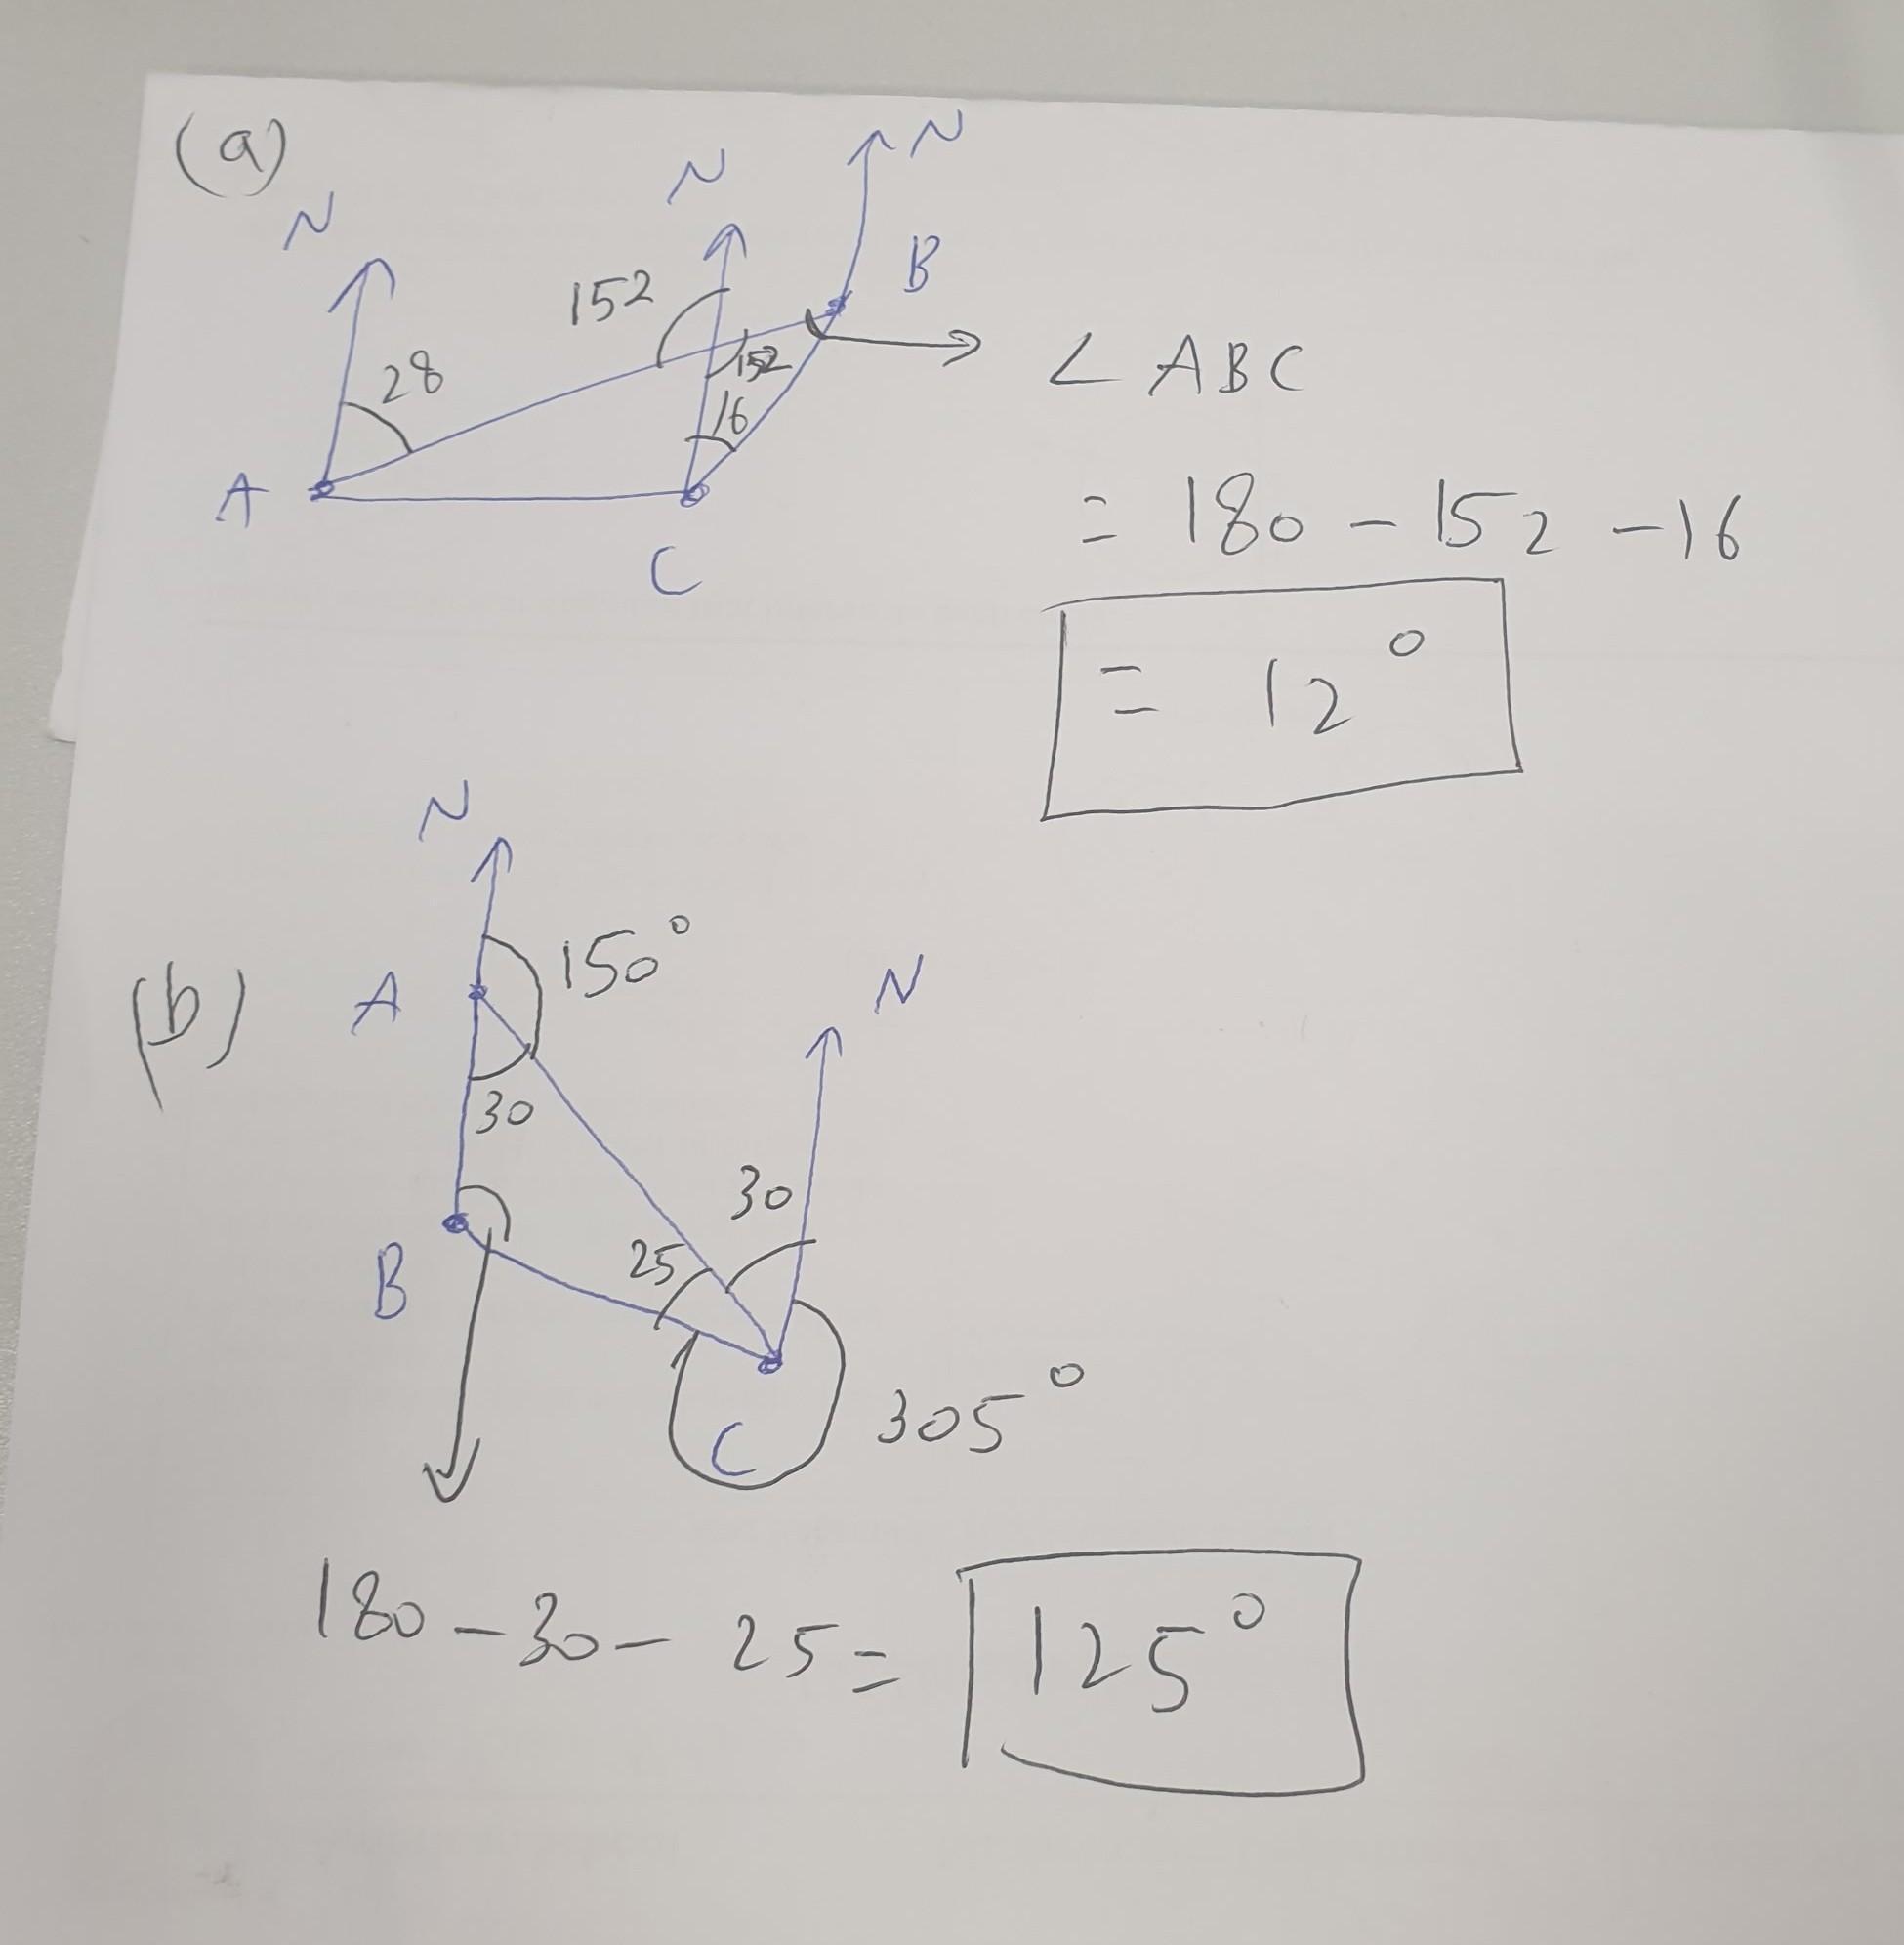 (a)
N
N
N
B
152
152
28
16
A
C
∠ ABC
= 180 - 152 - 16
= 12°
N
(b)
A
150°
N
30
30
25
B
C
305°
180 - 30 - 25 = 125°